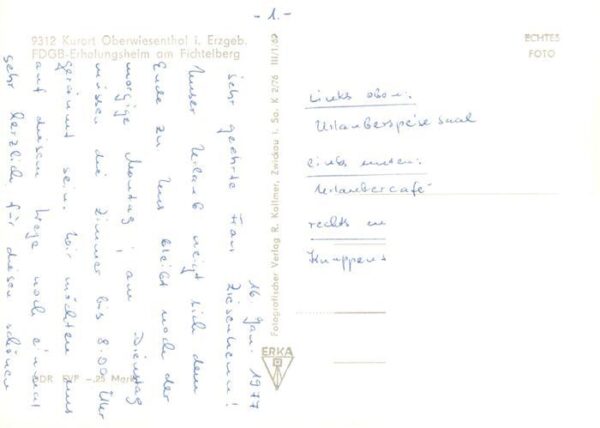 - 1. -
9312 Kurort Oberwiesenthal i. Erzgeb.
FDGB-Erholungsheim am Fichtelberg
ECHTES
FOTO
16. Jan. 1977
Sehr geehrte Frau
Unser Urlaub neigt sich dem
Ende zu. Uns bleibt noch der
morgige Montag, am Dienstag
müssen die Zimmer bis 8.00 Uhr
geräumt sein. Wir möchten uns
auf diesem Wege noch einmal
sehr herzlich für diesen schönen
Fotografischer Verlag R. Kallmer, Zwickau i. Sa. K 2/76 III/1/69
ERKA
DDR EVP -,25 Mark
Links oben:
Urlauberspeisesaal
links unten:
Urlaubercafé
rechts